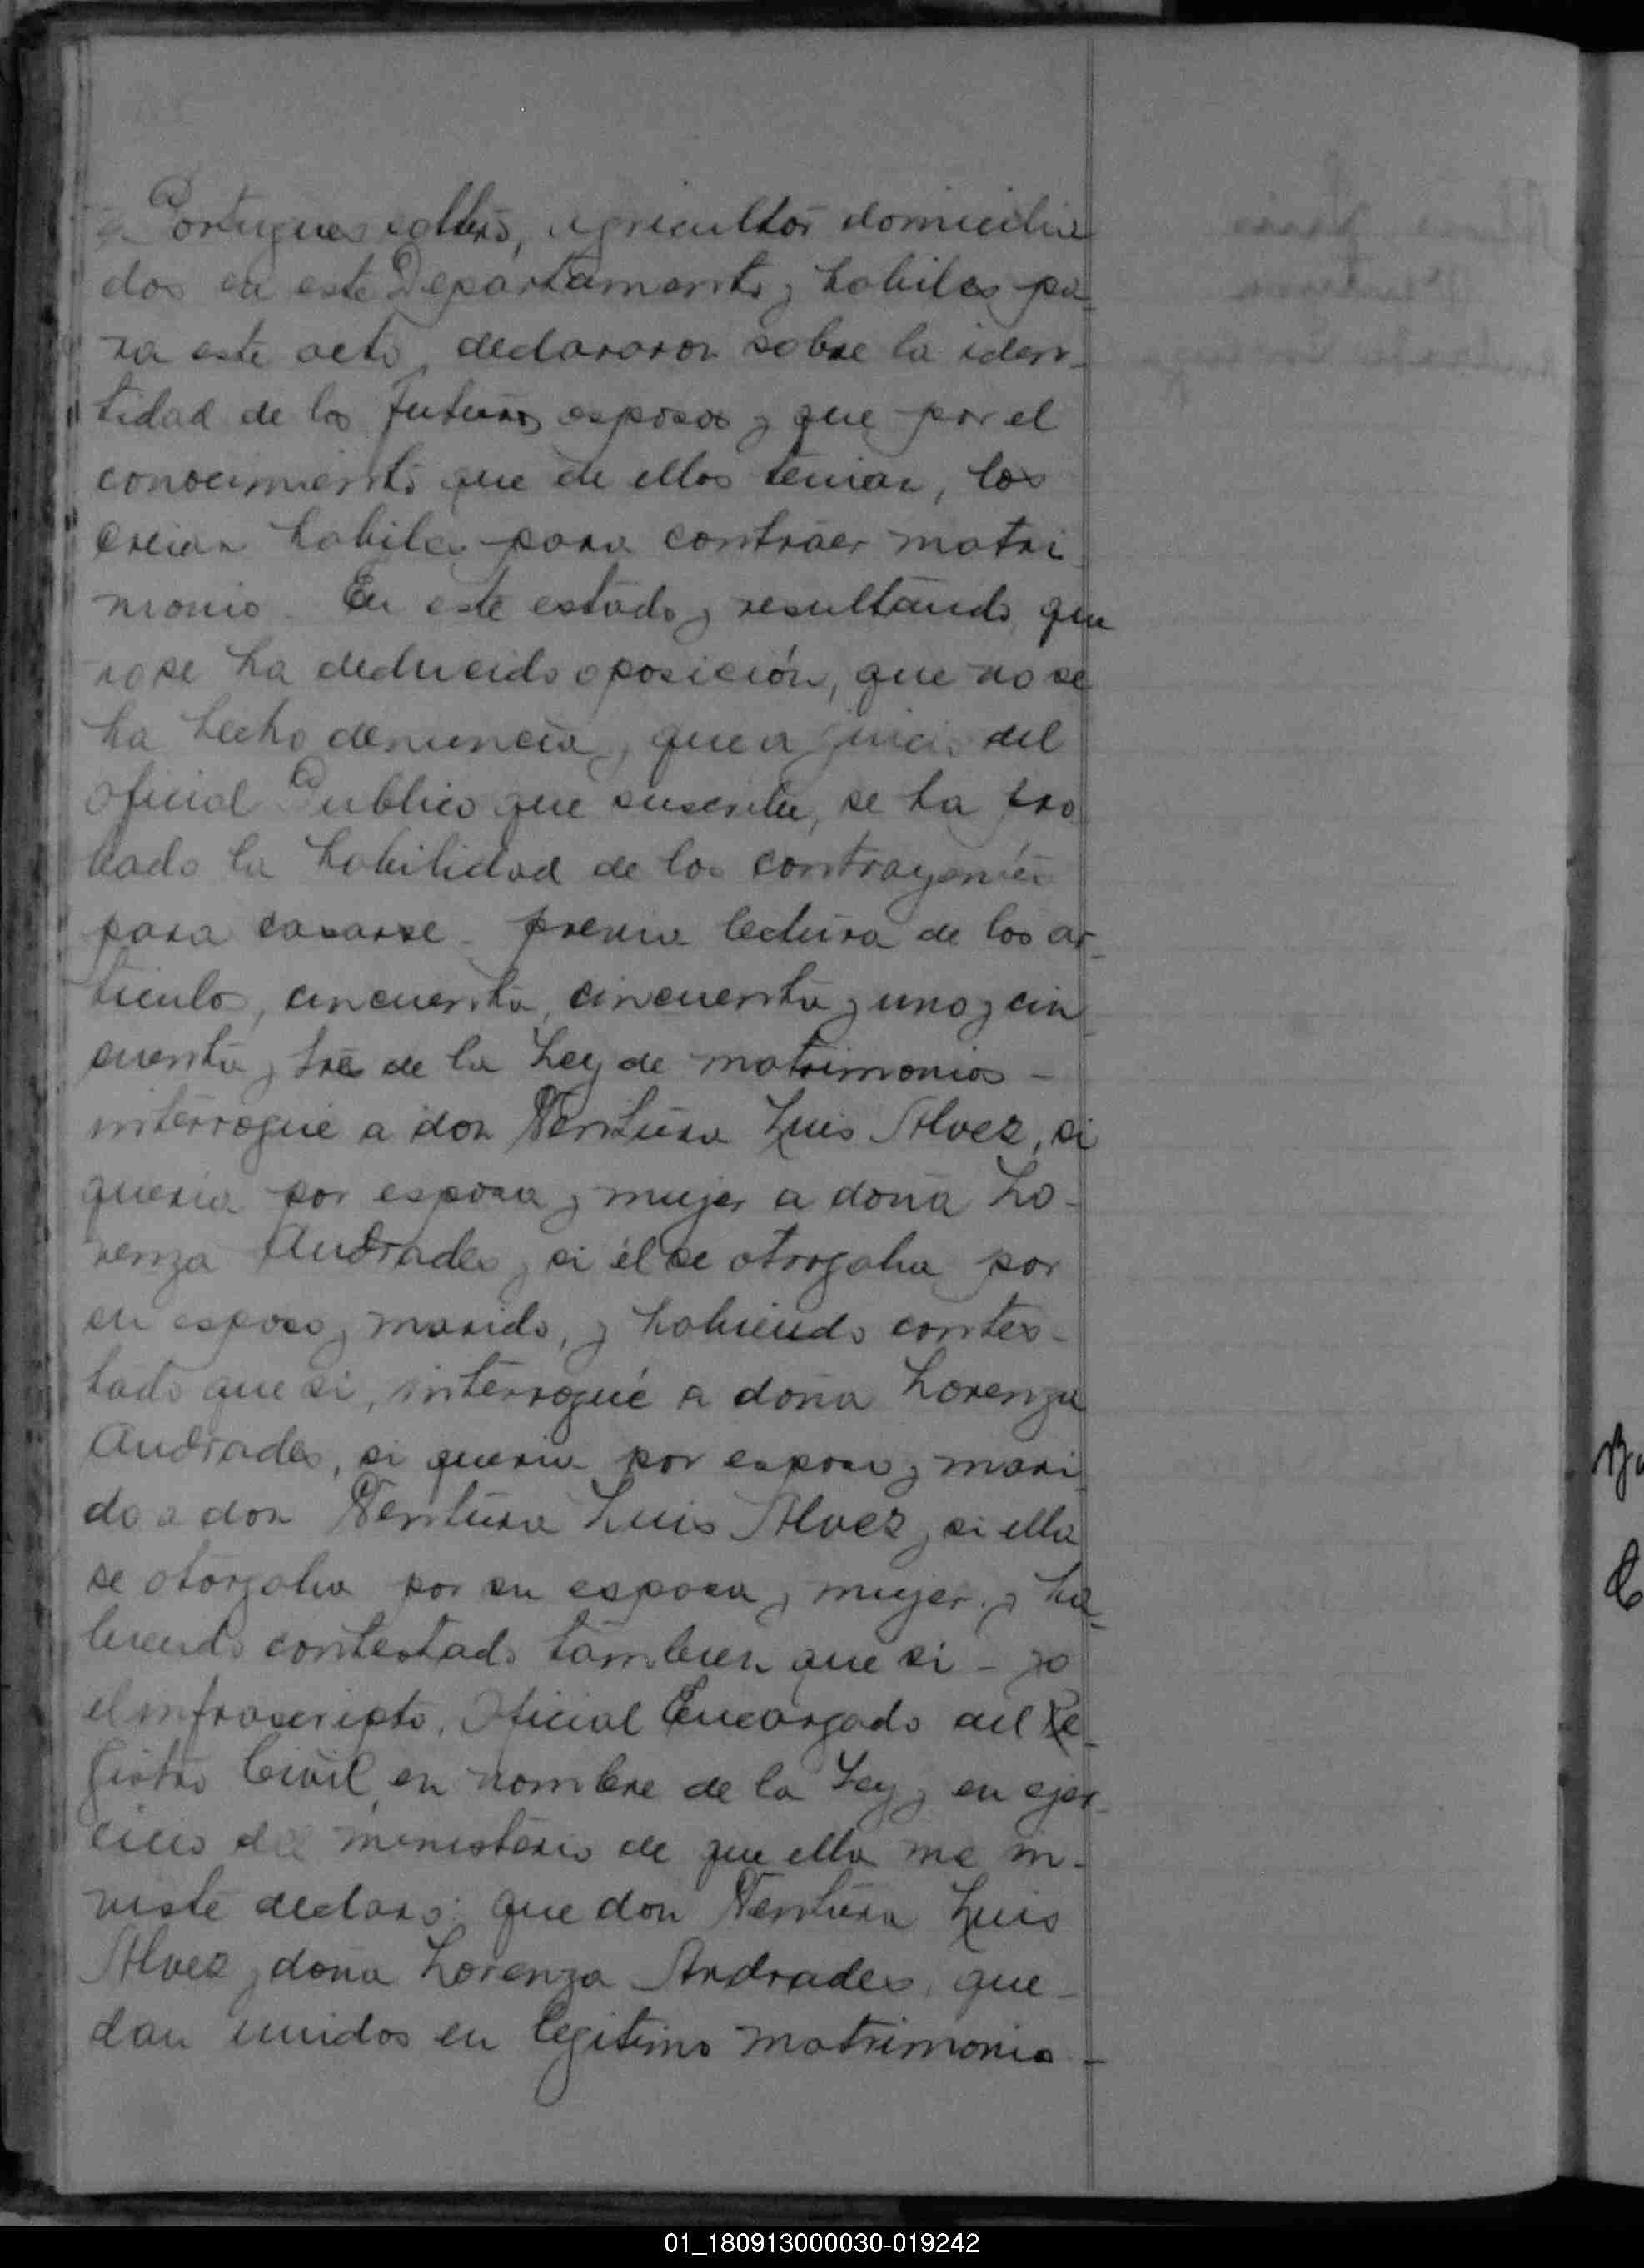 Portugues soltero, agricultor domicilia
dos en este Departamento y habiles pa-
ra este acto, declararon sobre la iden-
tidad de los futuros esposos y que por el
conocimiento que de ellos tenian, los
creian habiles para contraer matri
monio. En este estado y resultando que
no se ha deducido oposición, que no se
ha hecho denuncia y que a juicio del
Oficial Publico que suscribe, se ha pro
bado la habilidad de los contrayentes
para casarse - previa lectura de los ar-
ticulos, cincuenta, cincuenta y uno y cin
cuenta y tres de la Ley de matrimonios -
interrogué a don Ventura Luis Alvez, si
queria por esposa y mujer a doña Lo-
renza Andrades y si él se otorgaba por
su esposo y marido, y habiendo contes-
tado que si, interrogué a doña Lorenza
Andrades, si queria por esposo y mari
do a don Ventura Luis Alvez y si ella
se otorgaba por su esposa y mujer. y ha-
biendo contestado tambien que si - yo
el infrascripto, Oficial Encargado del Re-
gistro Civil, en nombre de la Ley y en ejer-
cicio del ministerio de que ella me in-
viste declaro: que don Ventura Luis
Alvez y doña Lorenza Andrades, que-
dan unidos en legitimo matrimonio -
01_180913000030-019242